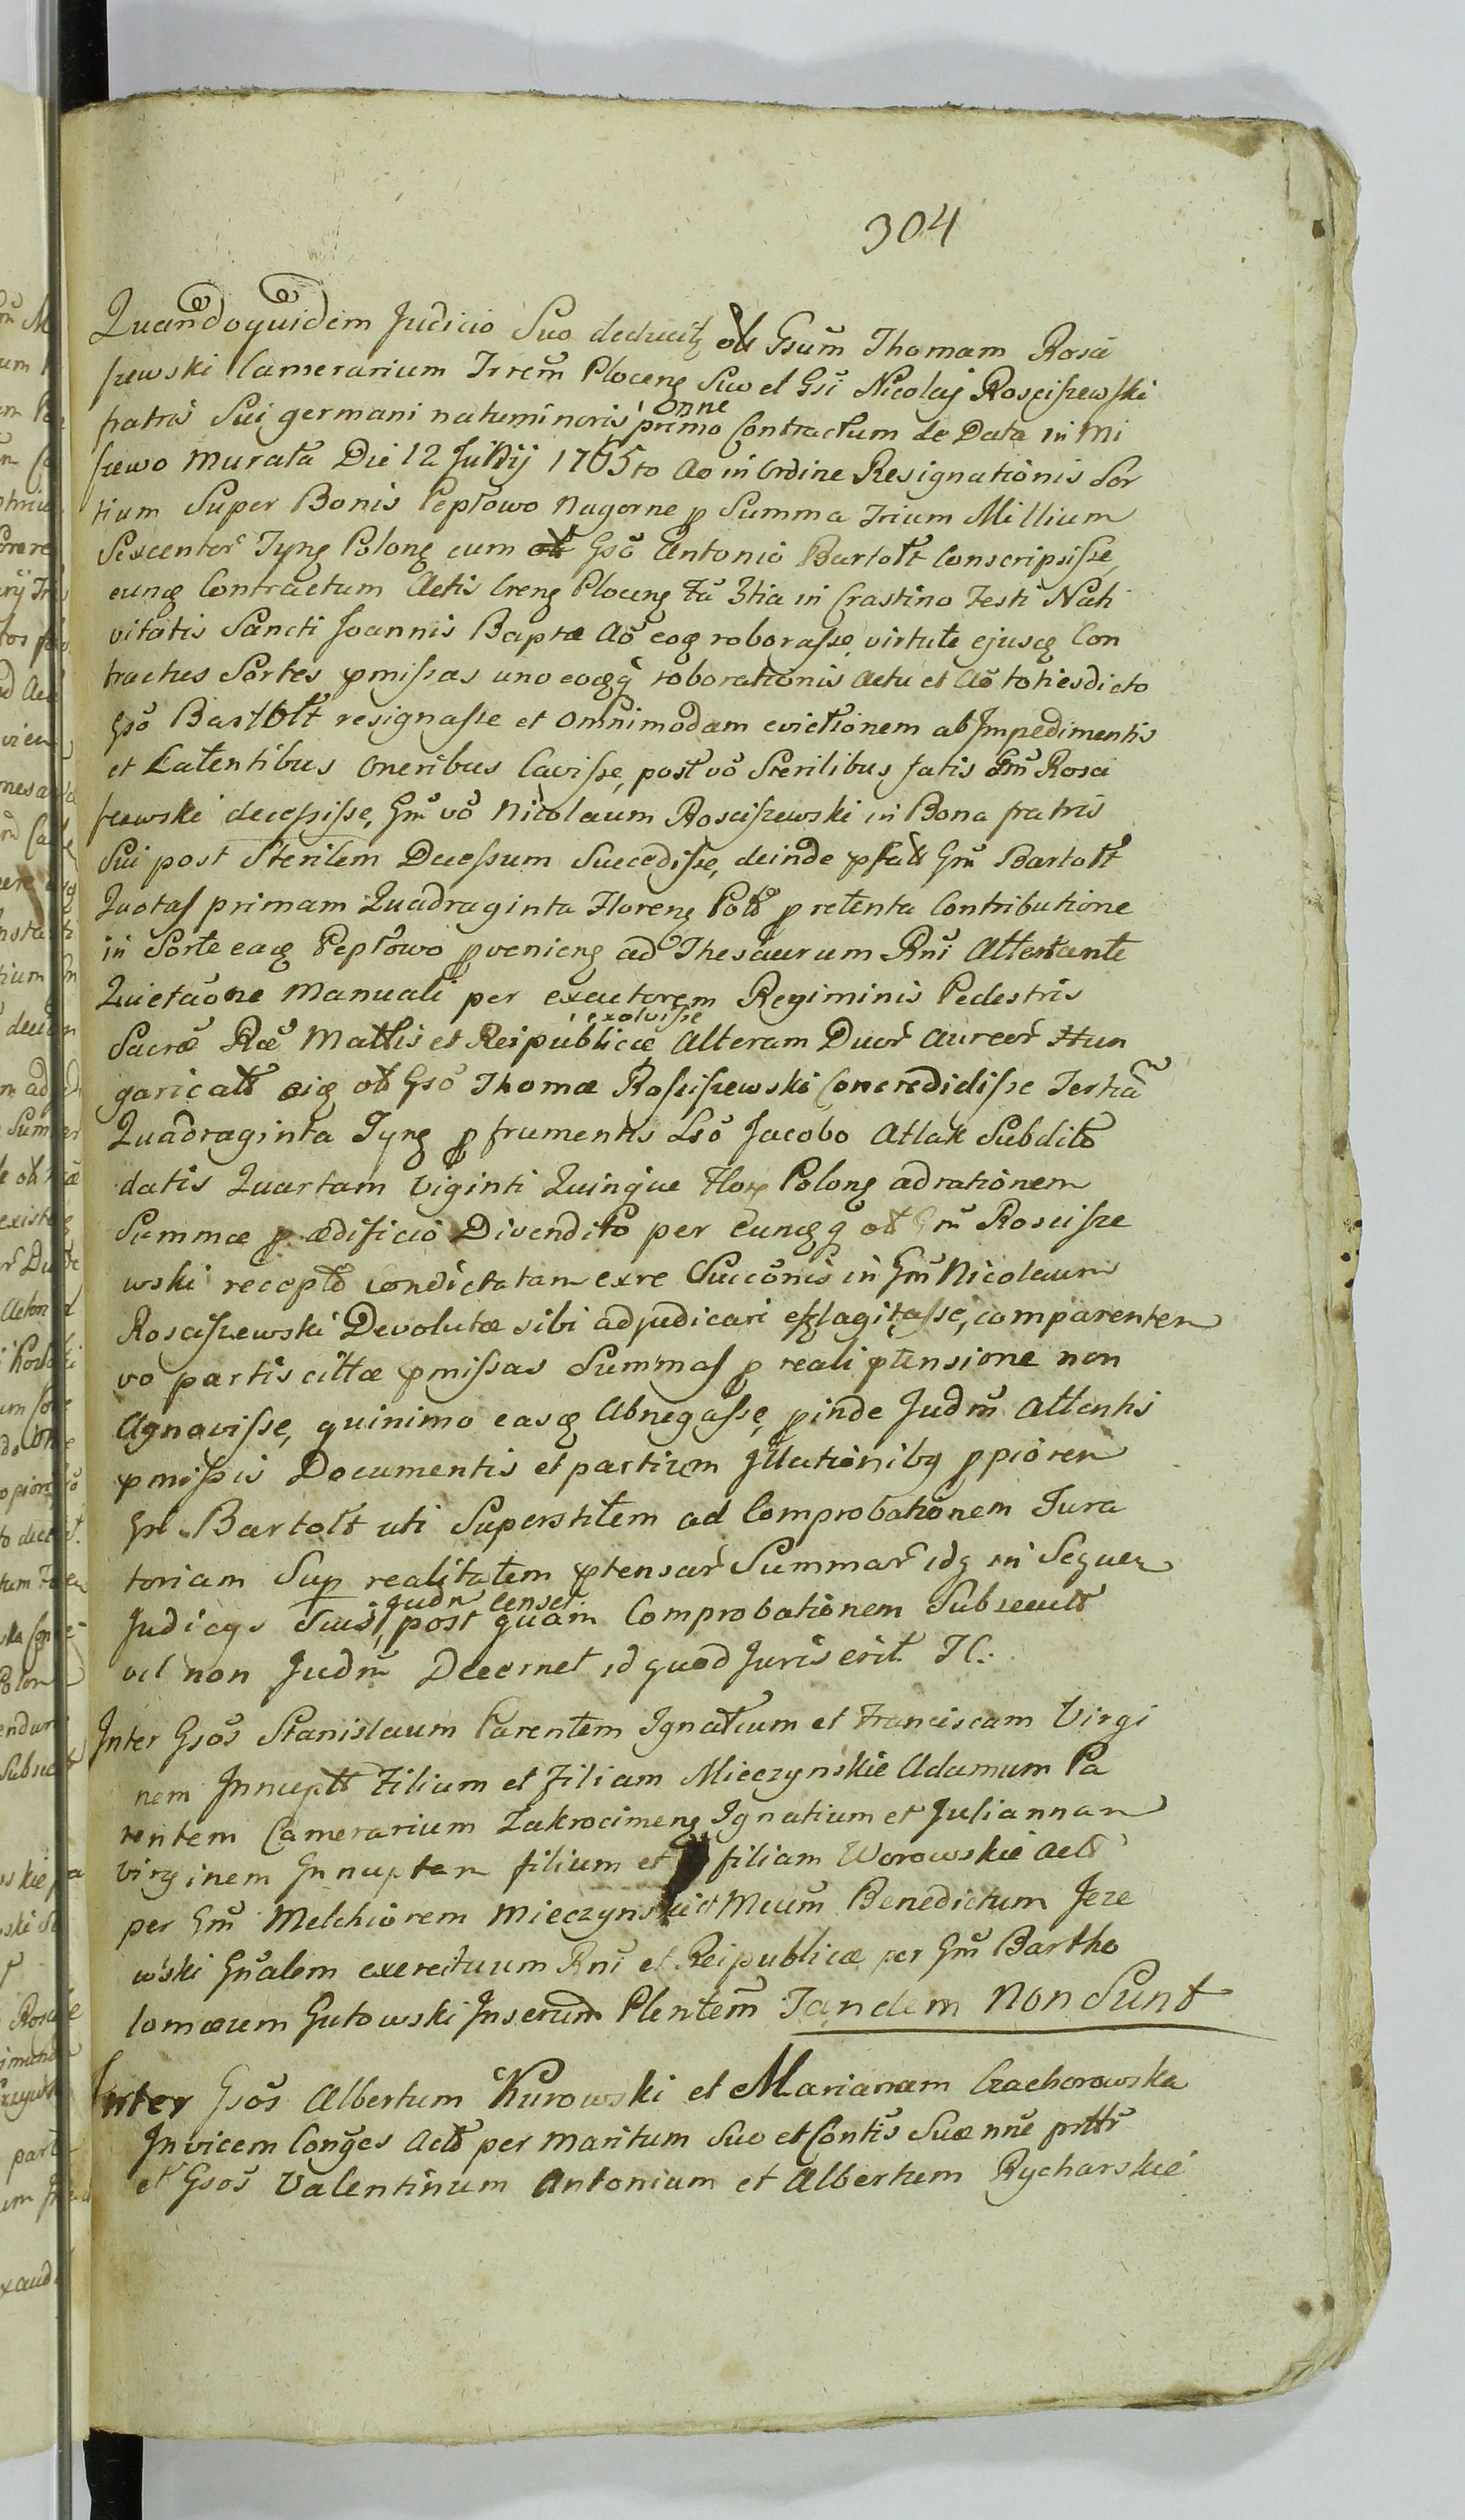 304
Quandoquidem Judicio Suo deducitz ott Gsum Thomam Rosci
szewski Camerarium Trrem Ploceng Suo et Gsi Nicolaj Rosciszewski
fratris Sui germani natuminoris onne primo Contractum de Data in Mi
szewo Murata Die 12 Junij 1765to Ao in Ordine Resignationis Sor
tium Super Bonis Pepłowo Nagorne p Summa Trium Millium
Sexcentor Tyng Polong cum ott Gso Antonio Bartołt Conscripsisse,
eunq Contractum Actis Creng Ploceng Fa 3tia in Crastino Festi Nati
vitatis Sancti Joannis Baptæ Ao eoq roborasse, virtute ejusq Con
tractus Sortes pmissas uno eodeqq roborationis Actu et Ao totiesdicto
Gso Bartołt resignasse et omnimodam evictionem ab Impedimentis
et Latentibus Oneribus Cavisse, post vo Sterilibus fatis Gm Rosci
szewski decessisse, Gm vo Nicolaum Rosciszewski in Bona fratris
Sui post Sterilem Decessum Successisse, deinde pfatt Gm Bartołt
Quotas primam Quadraginta Floreng Poltt p retenta Contributione
in Sorte eaq Pepłowo pvenieng ad Thesaurum Rni Attestante
Quietaone Manuali per exactorem Regiminis Pedestris
Sacræ Ræ Mattis et Reipublicæ exolvisse Alteram Duor Aureor Hun
garicatt eiq ott Gso Thomæ Rosciszewski Concredidisse Tertia
Quadraginta Tyng p frumentis Lso Jacobo Atlak Subdito
datis Quartam Viginti Quinque Flor Polong ad rationem
Summæ p ædificio Divendito per Eundqq ott Gm Roscisze
wski receptæ condictatam exre Succonis in Gm Nicolaum
Rosciszewski Devolutæ sibi adjudicari efflagitasse, comparentem
vo partis cittæ pmissas Summas p reali ptensione non
Agnovisse, quinimo easq Abnegasse, pinde Judm Attentis
pmissis Documentis et partium Illationibq ppiorem
Gm Bartołt uti Superstitem ad Comprobationem Jura
toriam Sup realitatem ptensar Summar idq in Sequen
Judicys Suis qudn censet, post quam Comprobationem Subsecutt
vel non Judm Decernet id quod Juris erit Tl.
Inter Gsos Stanislaum Parentem Ignatium et Franciscam Virgi
nem Innuptt Filium et Filiam Mieczynskie Adamum Pa
rentem Camerarium Zakrocimeng Ignatium et Juliannam
Virginem Innuptam filium et filiam Worowskie Actt
per Gm Melchiorem Mieczynski et Mcum Benedictum Jeze
wski Gnalem exercituum Rni et Reipublicæ per Gm Bartho
lomæum Gutowski Inserund Plentem Tandem Non Sunt
Inter Gsos Albertum Kurowski et Mariannam Czachorowska
Invicem Conges Actt per Maritum Suo et Contis Suæ nne prttr
et Gsos Valentinum Antonium et Albertum Rycharskie